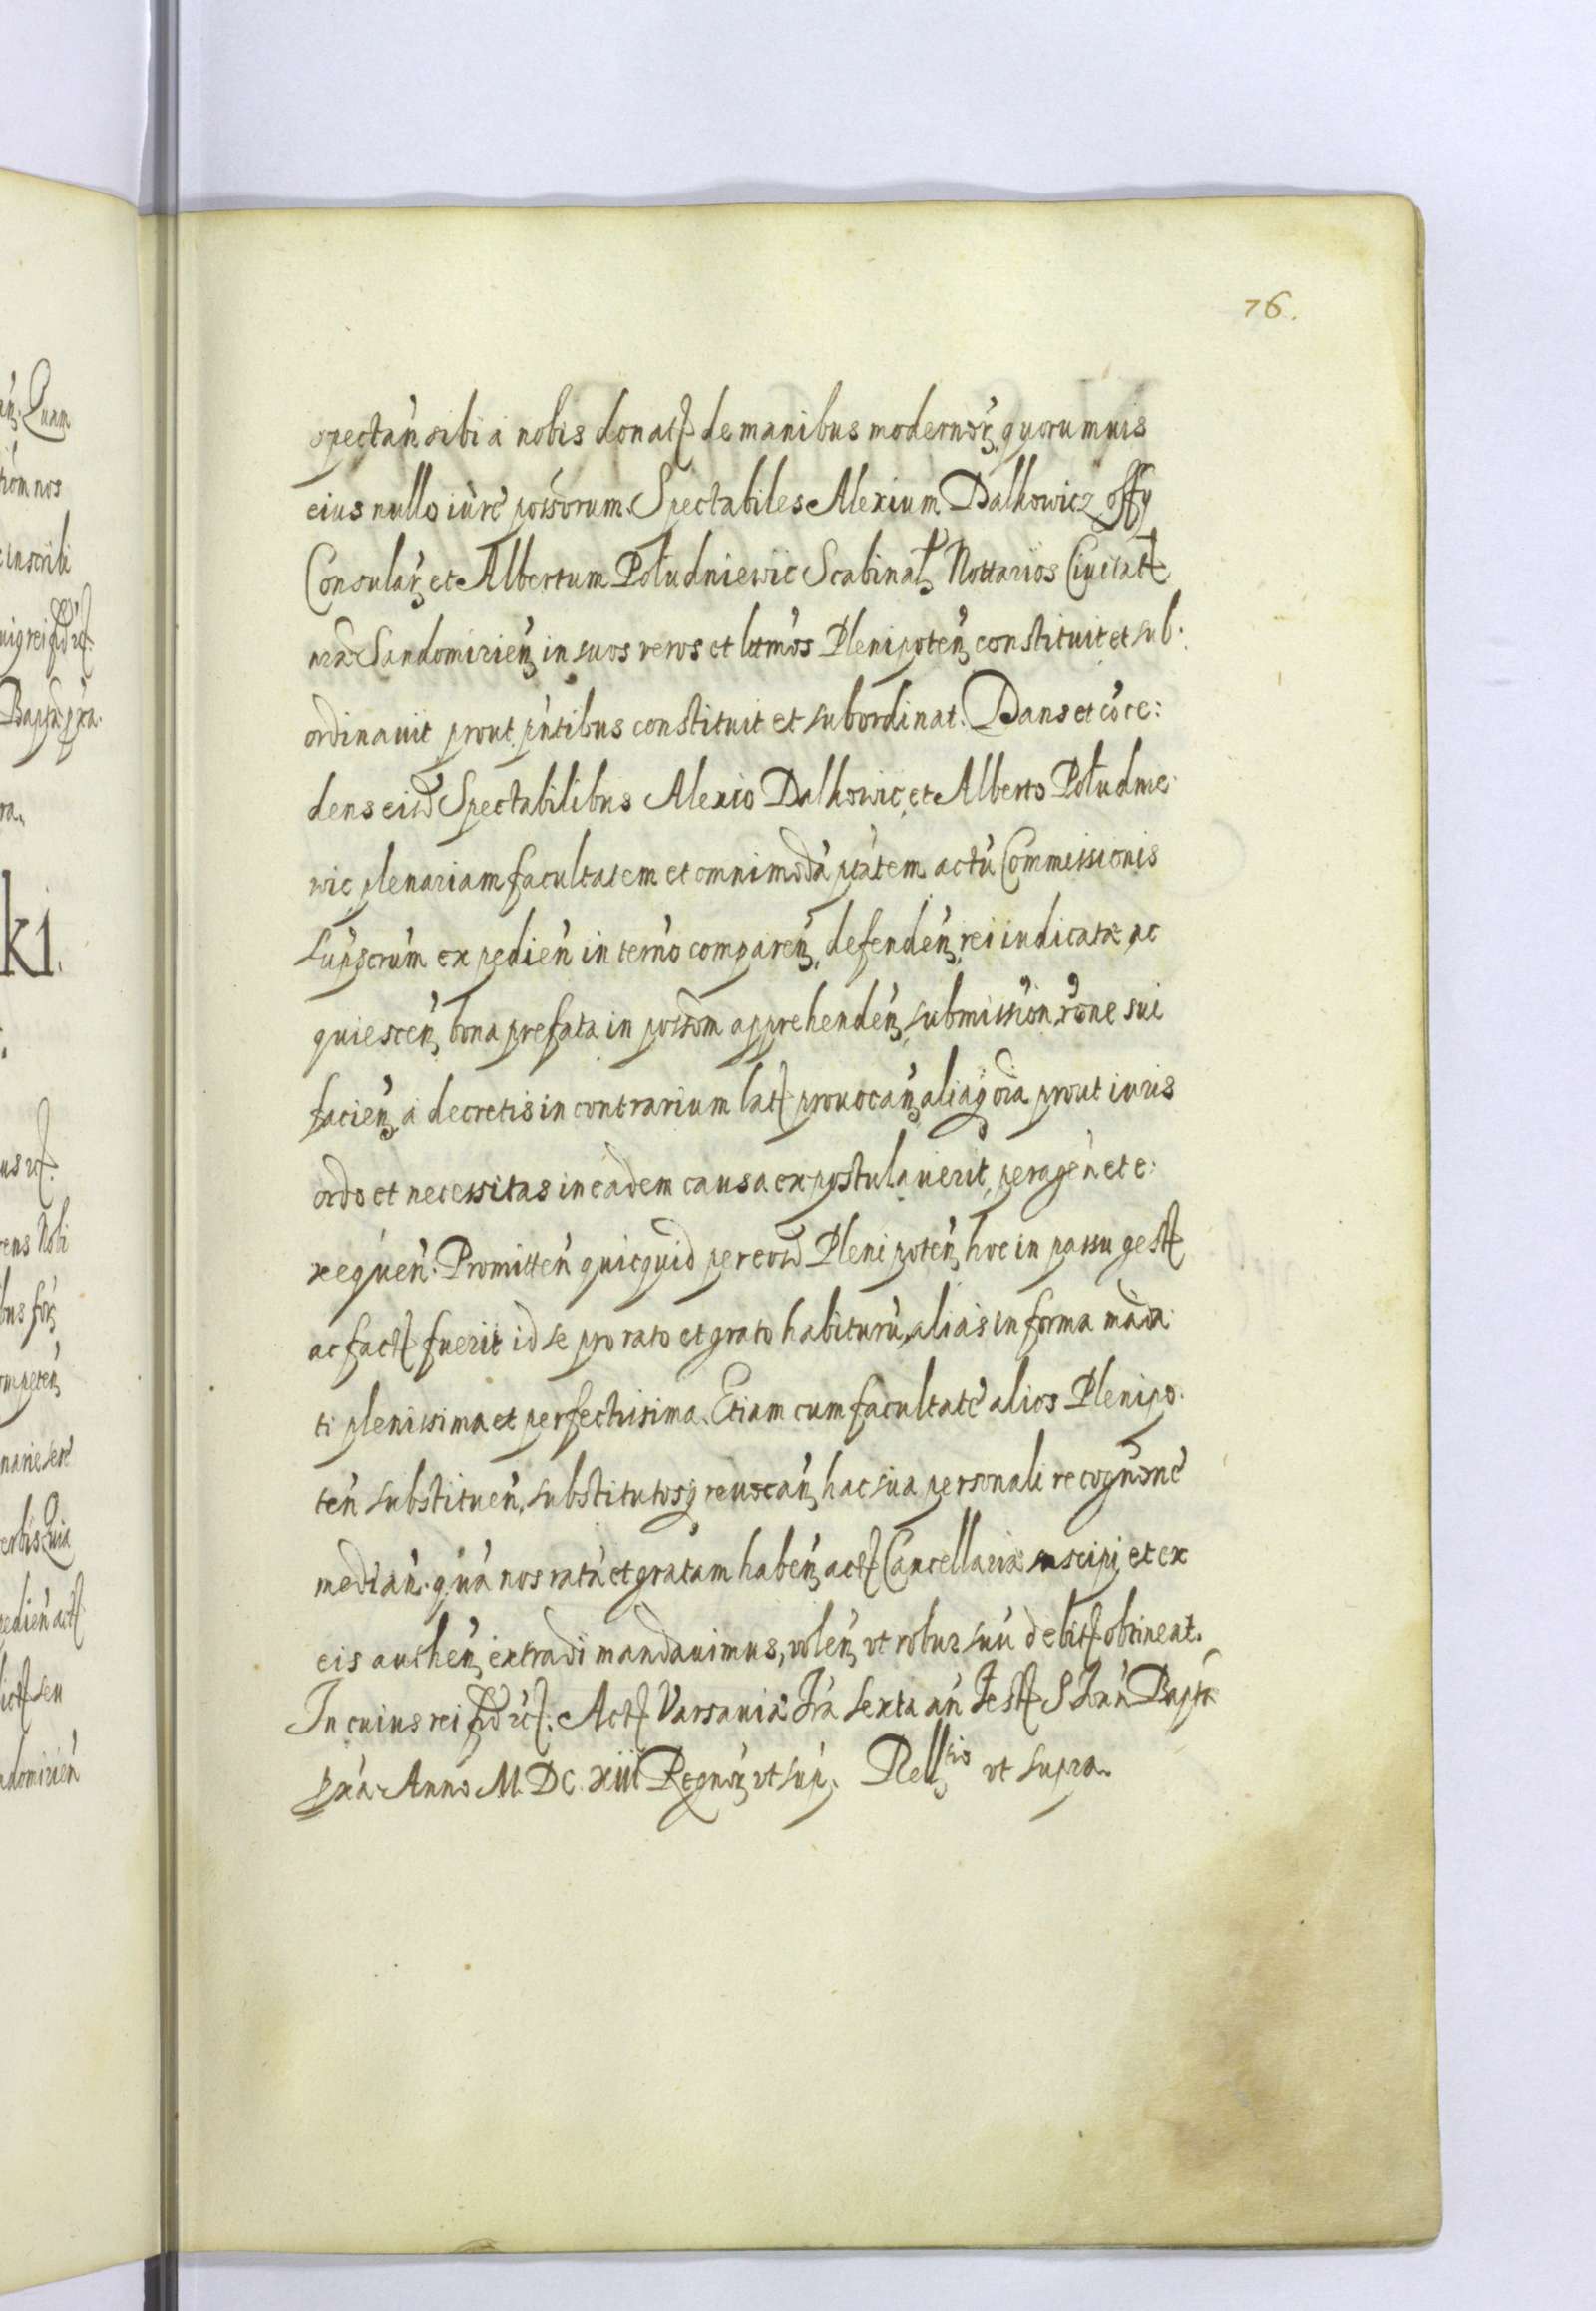 76.
spectan̄ sibi a nobis donat de manibus modernor̄ quorumuis
eius nullo iure possorum. Spectabiles Alexium Dalkowicz offy
Consular̄ et Albertum Południewic Scabinal Nottarios Ciuitat
nrae Sandomirien̄ in suos veros et lttmos Plenipoten̄ constituit et sub:
ordinauit prout pn̄tibus constituit et subordinat. Dans et co͂ce:
dens eisd̄ Spectabilibus Alexio Dalkowic et Alberto Południe:
wic plenariam facultatem et omnimodā ptātem actū Commissionis
supscrum expedien̄ in termo comparen̄, defenden̄, rei iudicatæ ac
quiescen̄ bona prefata in possom apprehenden̄, submission̄ rōne sui
facien̄ a decretis in contrarium lat prouocan̄ aliaq oīa prout iuris
ordo et necessitas in eadem causa expostulauerit, peragen̄ et e:
xequen̄. Promitten̄ quicquid per eosd̄ Plenipoten̄ hoc in passu gest
ac fact fuerit id se pro rato et grato habiturū, alias in forma māda
ti plenissima et perfectissima. Etiam cum facultate alios Plenipo:
ten̄ substituen̄, substitutosq reuocan̄ hac sua personali recognōne
median̄. quā nos ratā et gratam haben̄ act Cancellariæ suscipi, et ex
eis authen̄ extradi mandauimus, volen̄ vt robur suū debit obtineat.
In cuius rei fid rc. Act Varsauiæ fr̄a sexta an̄ Fest S Ioan̄ Bapta
pxa Anno M. DC. XIII Regnor̄ vt sup. Rell tio vt supra.